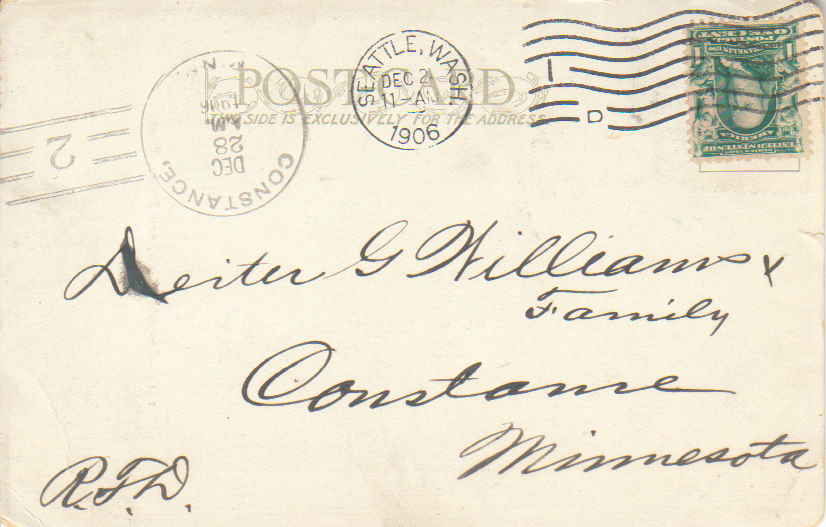 POST CARD
THIS SIDE IS EXCLUSIVELY FOR THE ADDRESS
SEATTLE, WASH.
DEC 2
11-AM
1906
1
D
ONE CENT
CONSTANCE,
DEC
28
AM
1906
2
Deiter G Williams &
Family
Constance
Minnesota
R.F.D.